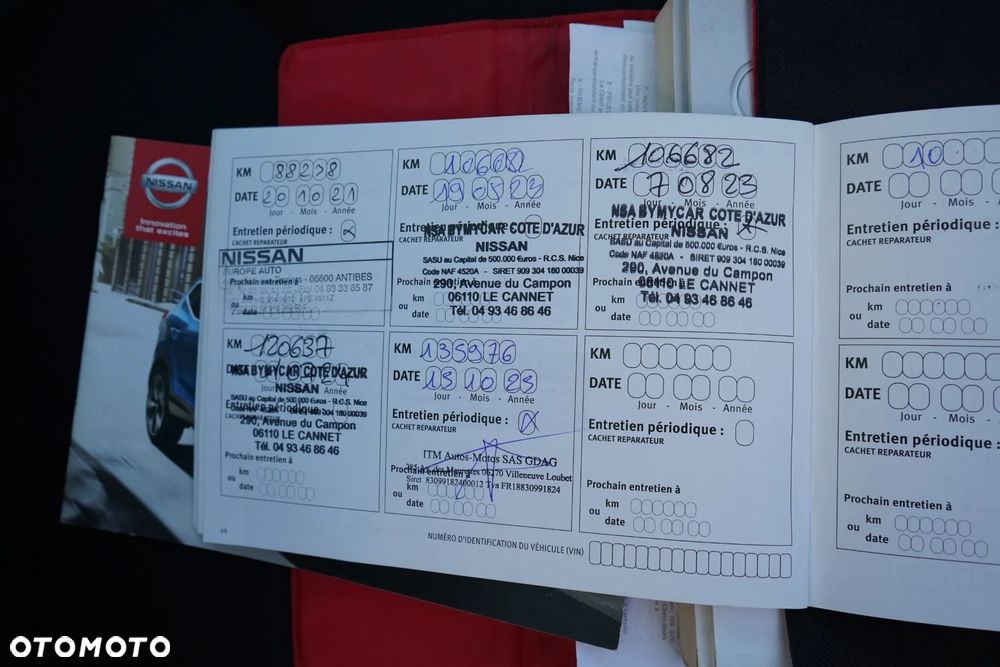 NISSAN
Innovation
that excites
KM 88278
DATE 20 10 21
Jour - Mois - Année
Entretien périodique :
CACHET REPARATEUR
NISSAN
EUROPE AUTO
06600 ANTIBES
04 93 33 85 87
Prochain entretien à
ou
date
KM 106682
DATE 19 05 23
Jour - Mois - Année
Entretien périodique
NSA BYMYCAR COTE D'AZUR
CACHET REPARATEUR
NISSAN
SASU au Capital de 500.000 €uros - R.C.S. Nice
Code NAF 4520A - SIRET 909 304 180 00039
Prochain entretien
290, Avenue du Campon
km
06110 LE CANNET
ou
date
Tél. 04 93 46 86 46
KM 106682
DATE 7 08 23
Jour - Mois - Année
NSA BYMYCAR COTE D'AZUR
Entretien périodique :
NISSAN
CACHET REPARATEUR
SASU au Capital de 500.000 €uros - R.C.S. Nice
Code NAF 4520A - SIRET 909 304 180 00039
290, Avenue du Campon
Prochain entretien
km
06110 LE CANNET
ou
Tél. 04 93 46 86 46
date
KM 120637
NSA BYMYCAR COTE D'AZUR
Année
NISSAN
SASU au Capital de 500.000 €uros - R.C.S. Nice
Entretien périodique :
290, Avenue du Campon
06110 LE CANNET
Tél. 04 93 46 86 46
Prochain entretien à
km
ou
date
KM 135976
DATE 13 10 23
Jour - Mois - Année
Entretien périodique :
CACHET REPARATEUR
ITM Autos-Motos SAS GDAG
06270 Villeneuve Loubet
Prochain entretien à
Siret 83099182400012 Tva FR18830991824
km
ou
date
KM
DATE
Jour - Mois - Année
Entretien périodique :
CACHET REPARATEUR
Prochain entretien à
km
ou
date
NUMÉRO D'IDENTIFICATION DU VÉHICULE (VIN)
KM 10
DATE
Jour - Mois
Entretien périodique
CACHET REPARATEUR
Prochain entretien à
km
ou
date
KM
DATE
Jour - Mois
Entretien périodique
CACHET REPARATEUR
Prochain entretien à
km
ou
date
OTOMOTO